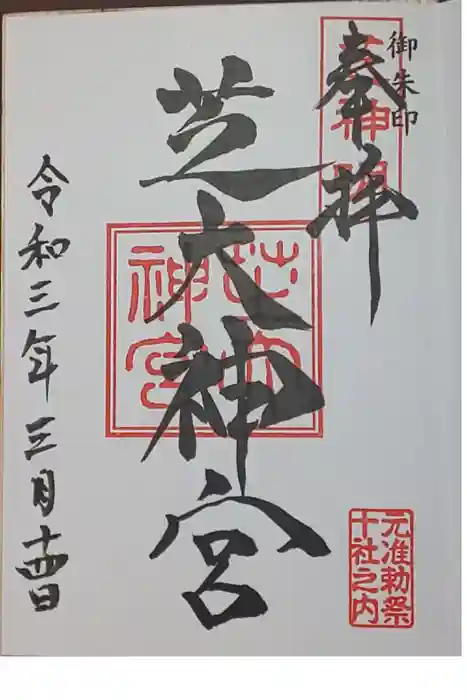 御朱印
奉拝
芝神明
芝大神宮
芝大
神宮
元准勅祭
十社之内
令和三年三月十四日